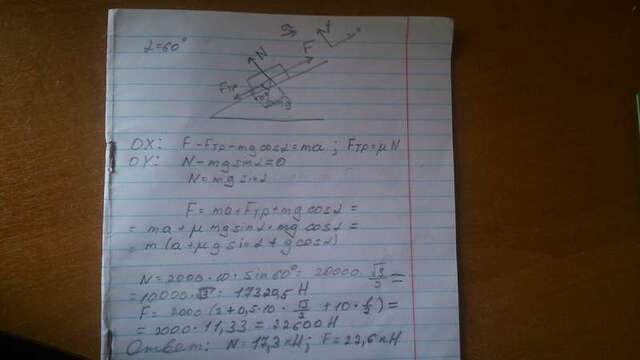 α=60°
N
F
y
x
Fтр
mg
OX: F-Fтр-mgcosα=ma; Fтр=μN
OY: N-mgsinα=0
N=mgsinα
F=ma+Fтр+mgcosα=
=ma+μmgsinα+mgcosα=
=m(a+μgsinα+gcosα)
N=2000·10·sin60°=20000·√3/2=
=10000·√3=17320,5H
F=2000(2+0,5·10·√3/2+10·1/2)=
=2000·11,33=22600H
Ответ: N=17,3кН; F=22,6кН